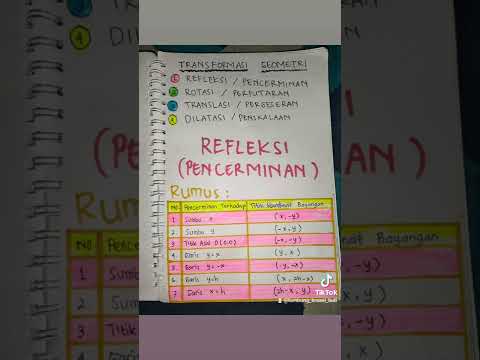 TRANSFORMASI GEOMETRI
1 REFLEKSI / PENCERMINAN
2 ROTASI / PERPUTARAN
3 TRANSLASI / PERGESERAN
4 DILATASI / PENSKALAAN
REFLEKSI
(PENCERMINAN)
Rumus :
NO Pencerminan Terhadap Titik Koordinat Bayangan
1 Sumbu x (x, -y)
2 Sumbu y (-x, y)
3 Titik Asal O(0,0) (-x, -y)
4 Garis y=x (y, x)
5 Garis y=-x (-y, -x)
6 Garis y=h (x, 2h-x)
7 Garis x=h (2h-x, y)
TikTok